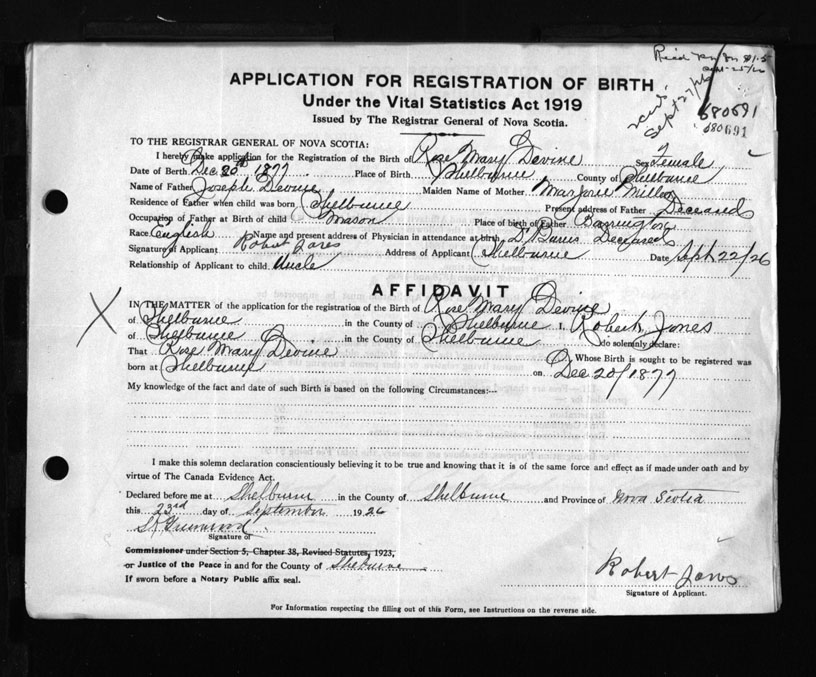 Sept 27/26
680691
680691
APPLICATION FOR REGISTRATION OF BIRTH
Under the Vital Statistics Act 1919
Issued by The Registrar General of Nova Scotia.
TO THE REGISTRAR GENERAL OF NOVA SCOTIA:
I hereby make application for the Registration of the Birth of Rose Mary Devine Sex Female
Date of Birth Dec 20th 1877 Place of Birth Shelburne County of Shelburne
Name of Father Joseph Devine Maiden Name of Mother Marjorie Miller
Residence of Father when child was born Shelburne Present address of Father Deceased
Occupation of Father at Birth of child Mason Place of birth of Father Barrington
Race English Name and present address of Physician in attendance at birth Deceased
Signature of Applicant Robert Jones Address of Applicant Shelburne Date Sept 22/26
Relationship of Applicant to child Uncle
AFFIDAVIT
IN THE MATTER of the application for the registration of the Birth of Rose Mary Devine
of Shelburne in the County of Shelburne I, Robert Jones
of Shelburne in the County of Shelburne do solemnly declare:
That Rose Mary Devine Whose Birth is sought to be registered was
born at Shelburne on Dec 20/1877
My knowledge of the fact and date of such Birth is based on the following Circumstances:--
I make this solemn declaration conscientiously believing it to be true and knowing that it is of the same force and effect as if made under oath and by
virtue of The Canada Evidence Act.
Declared before me at Shelburne in the County of Shelburne and Province of Nova Scotia
this 23rd day of September 1926
Signature of
Commissioner under Section 5, Chapter 38, Revised Statutes, 1923,
or Justice of the Peace in and for the County of Shelburne
If sworn before a Notary Public affix seal.
Robert Jones
Signature of Applicant.
For Information respecting the filling out of this Form, see Instructions on the reverse side.